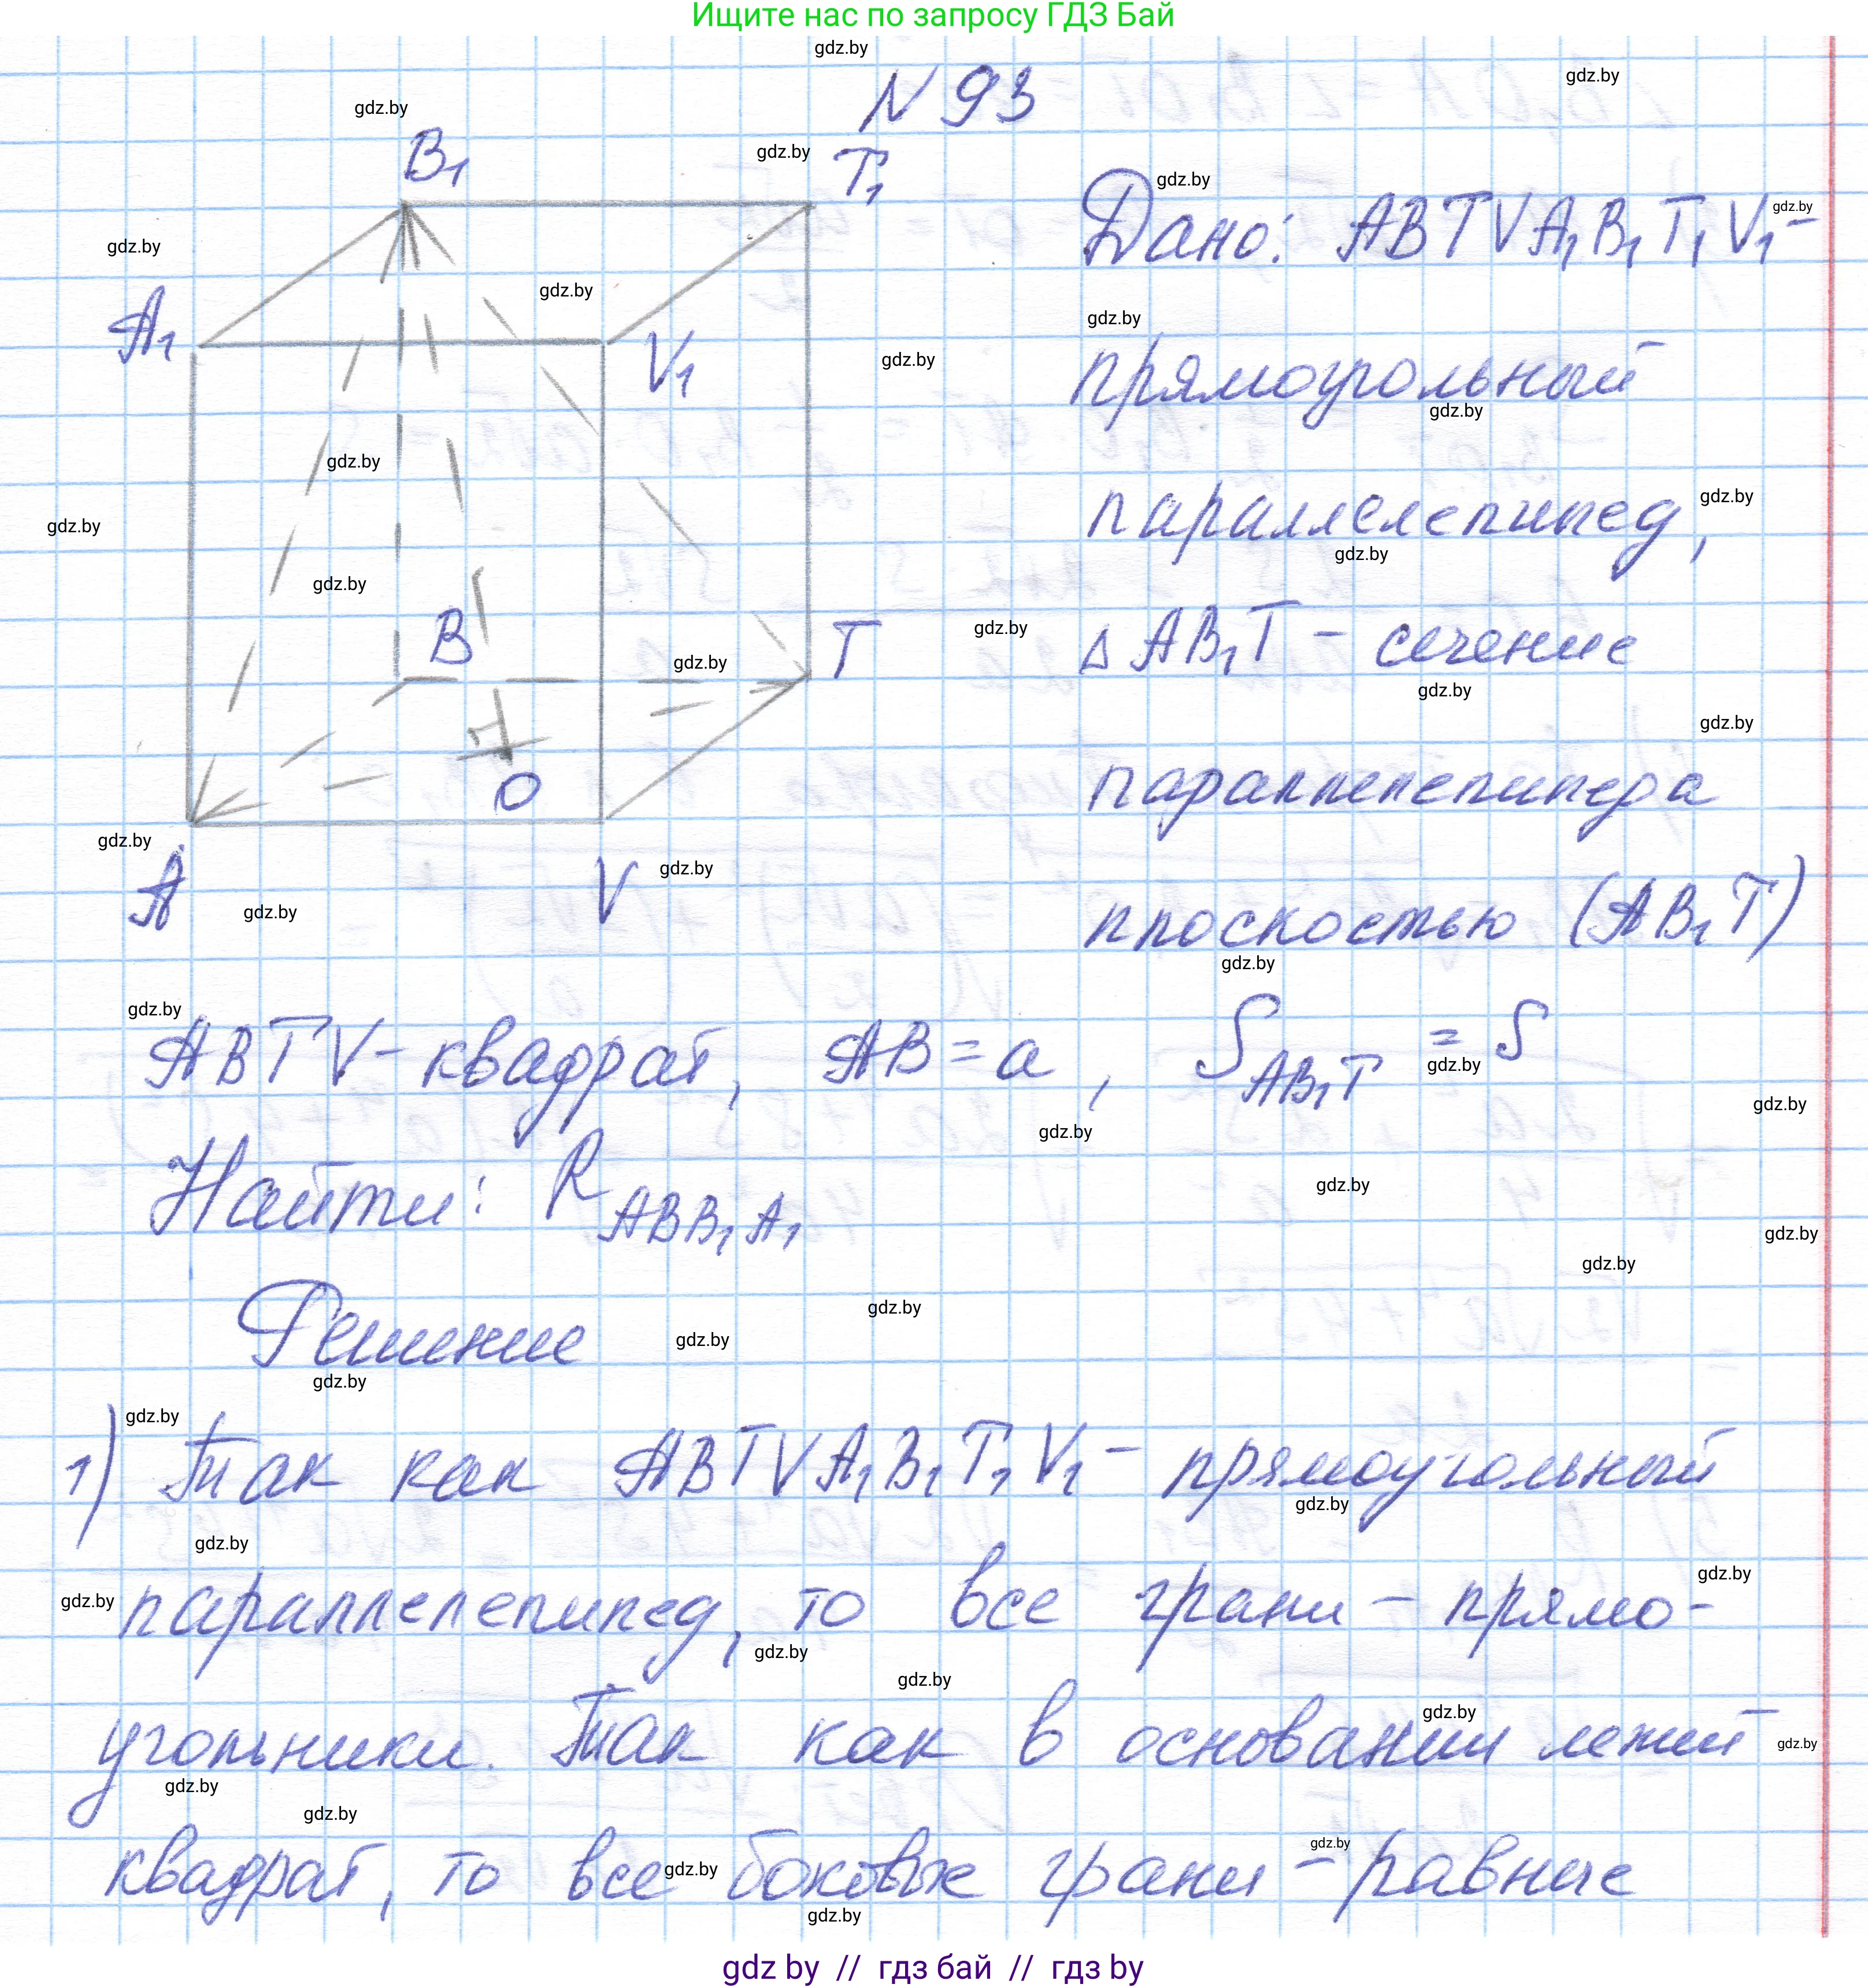 Ищите нас по запросу ГДЗ Бай
N 93
B₁
T₁
A₁
V₁
B
T
O
A
V
Дано: ABTVA₁B₁T₁V₁ –
прямоугольный
параллелепипед,
△ AB₁T – сечение
параллелепипеда
плоскостью (AB₁T)
ABTV – квадрат, AB = a, S_AB₁T = S
Найти: R_ABB₁A₁
Решение
1) Так как ABTVA₁B₁T₁V₁ – прямоугольный
параллелепипед, то все грани – прямо-
угольники. Так как в основании лежит
квадрат, то все боковые грани – равные
gdz by // гдз бай // гдз by